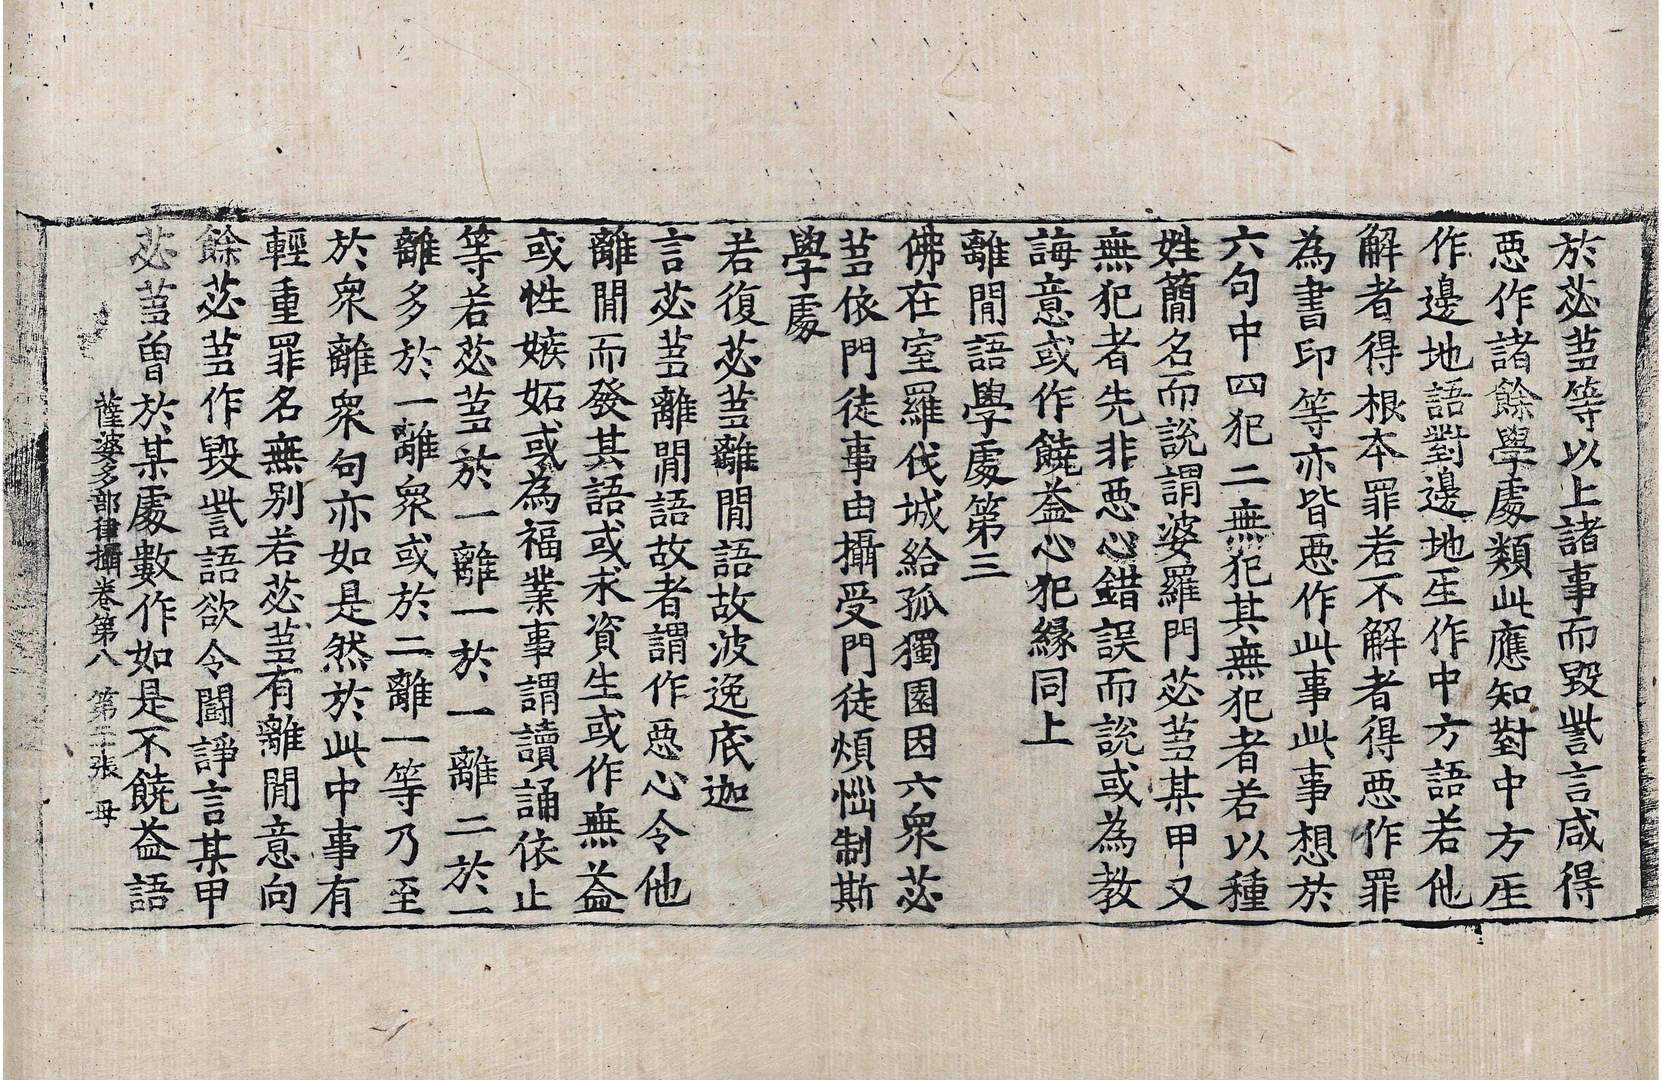 於苾蒭等以上諸事而毀呰言咸得
惡作諸餘學處類此應知對中方𤯔
作邊地語對邊地𤯔作中方語若他
解者得根本罪若不解者得惡作罪
為書印等亦皆惡作此事此事想於
六句中四犯二無犯其無犯者若以種
姓簡名而說謂婆羅門苾蒭某甲又
無犯者先非惡心錯誤而說或為教
誨意或作饒益心犯緣同上
離間語學處第三
佛在室羅伐城給孤獨園因六衆苾
蒭依門徒事由攝受門徒煩惱制斯
學處
若復苾蒭離間語故波逸底迦
言苾蒭離間語故者謂作惡心令他
離間而發其語或求資生或作無益
或性嫉妬或為福業事謂讀誦依止
等若苾蒭於一離一於一離二於一
離多於一離衆或於二離一等乃至
於衆離衆句亦如是然於此中事有
輕重罪名無別若苾蒭有離間意向
餘苾蒭作毀呰語欲令鬪諍言某甲
苾蒭曾於某處數作如是不饒益語
薩婆多部律攝卷第八 第二張 母